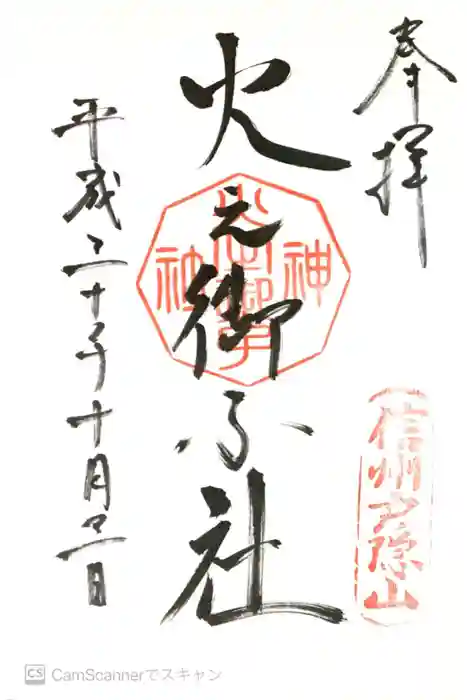 奉拝
火之御子社
神社
信州戸隠山
平成三十年十月 日
CS CamScannerでスキャン